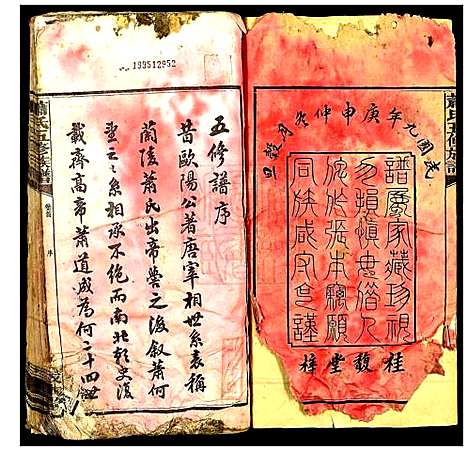 蕭氏五修族譜
民國九年庚申仲冬月穀旦
譜屬家藏珍視
勿損慎毋借人
張本竊願
同族咸守
桂馥堂梓
五修譜序
昔歐陽公著唐宰相世系表稱
蘭陵蕭氏出帝嚳之後敘蕭何
望之之系相承不絕而南北朝史復
載齊高帝蕭道成為何二十四世
蕭氏五修族譜
卷首
序
199512952